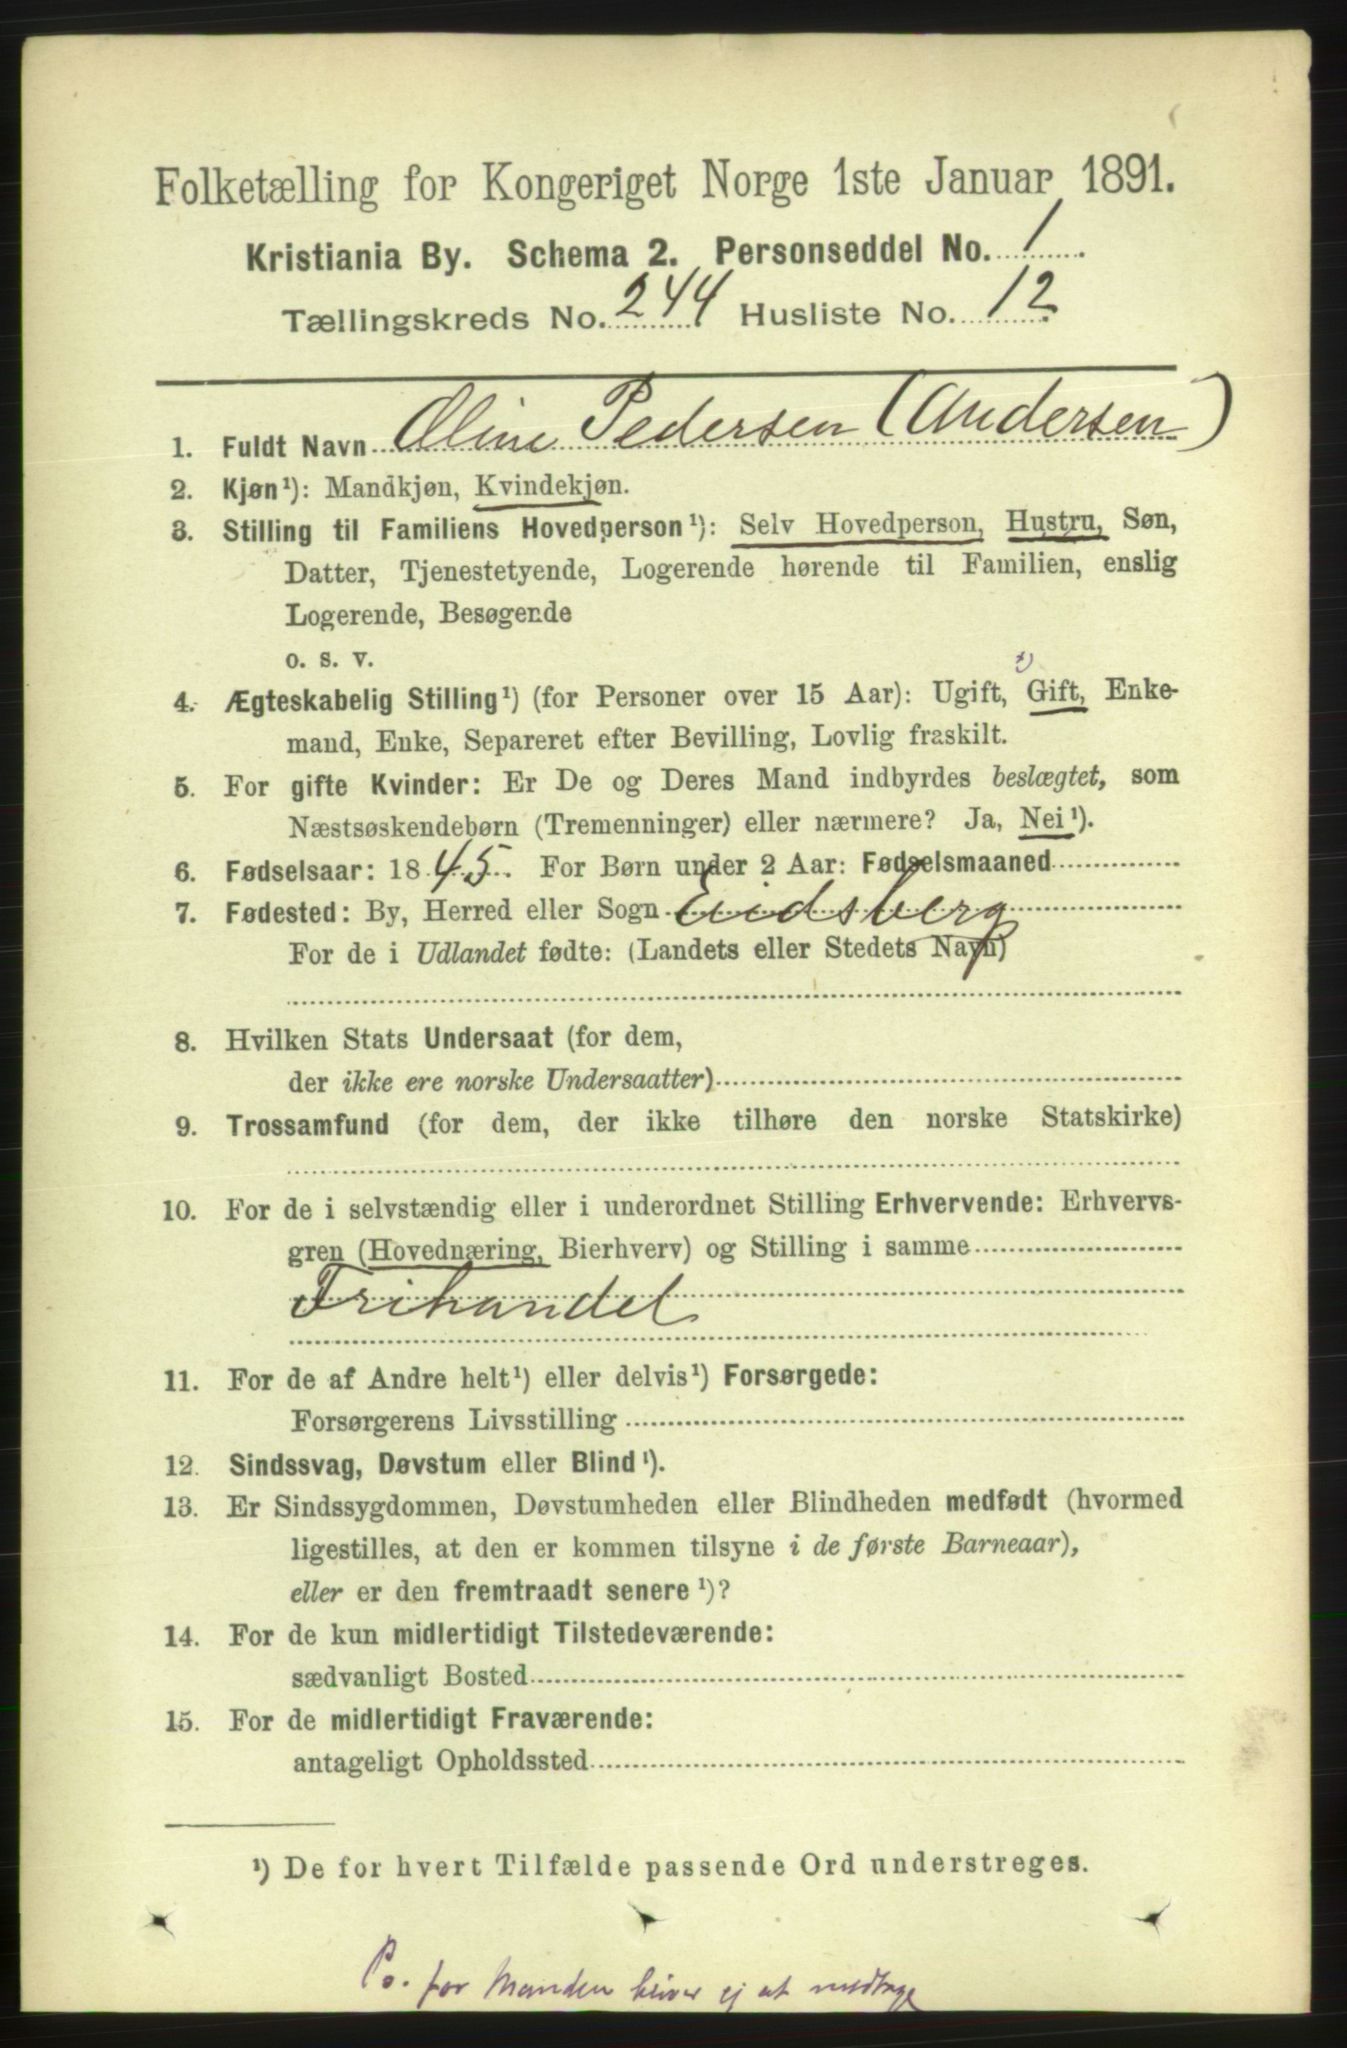 Folketælling for Kongeriget Norge 1ste Januar 1891.
Kristiania By. Schema 2. Personseddel No. 1
Tællingskreds No. 244 Husliste No. 12
1. Fuldt Navn Oline Pedersen (Andersen)
2. Kjøn¹): Mandkjøn, Kvindekjøn.
3. Stilling til Familiens Hovedperson¹): Selv Hovedperson, Hustru, Søn,
Datter, Tjenestetyende, Logerende hørende til Familien, enslig
Logerende, Besøgende
o. s. v.
4. Ægteskabelig Stilling¹) (for Personer over 15 Aar): Ugift, Gift, Enke-
mand, Enke, Separeret efter Bevilling, Lovlig fraskilt.
5. For gifte Kvinder: Er De og Deres Mand indbyrdes beslægtet, som
Næstsøskendebørn (Tremenninger) eller nærmere? Ja, Nei¹).
6. Fødselsaar: 1845. For Børn under 2 Aar: Fødselsmaaned
7. Fødested: By, Herred eller Sogn Eidsberg
For de i Udlandet fødte: (Landets eller Stedets Navn)
8. Hvilken Stats Undersaat (for dem,
der ikke ere norske Undersaatter)
9. Trossamfund (for dem, der ikke tilhøre den norske Statskirke)
10. For de i selvstændig eller i underordnet Stilling Erhvervende: Erhvervs-
gren (Hovednæring, Bierhverv) og Stilling i samme
Frihandel
11. For de af Andre helt¹) eller delvis¹) Forsørgede:
Forsørgerens Livsstilling
12. Sindssvag, Døvstum eller Blind¹).
13. Er Sindssygdommen, Døvstumheden eller Blindheden medfødt (hvormed
ligestilles, at den er kommen tilsyne i de første Barneaar),
eller er den fremtraadt senere¹)?
14. For de kun midlertidigt Tilstedeværende:
sædvanligt Bosted
15. For de midlertidigt Fraværende:
antageligt Opholdssted
¹) De for hvert Tilfælde passende Ord understreges.
Ps. for Manden bliver ej at medtage